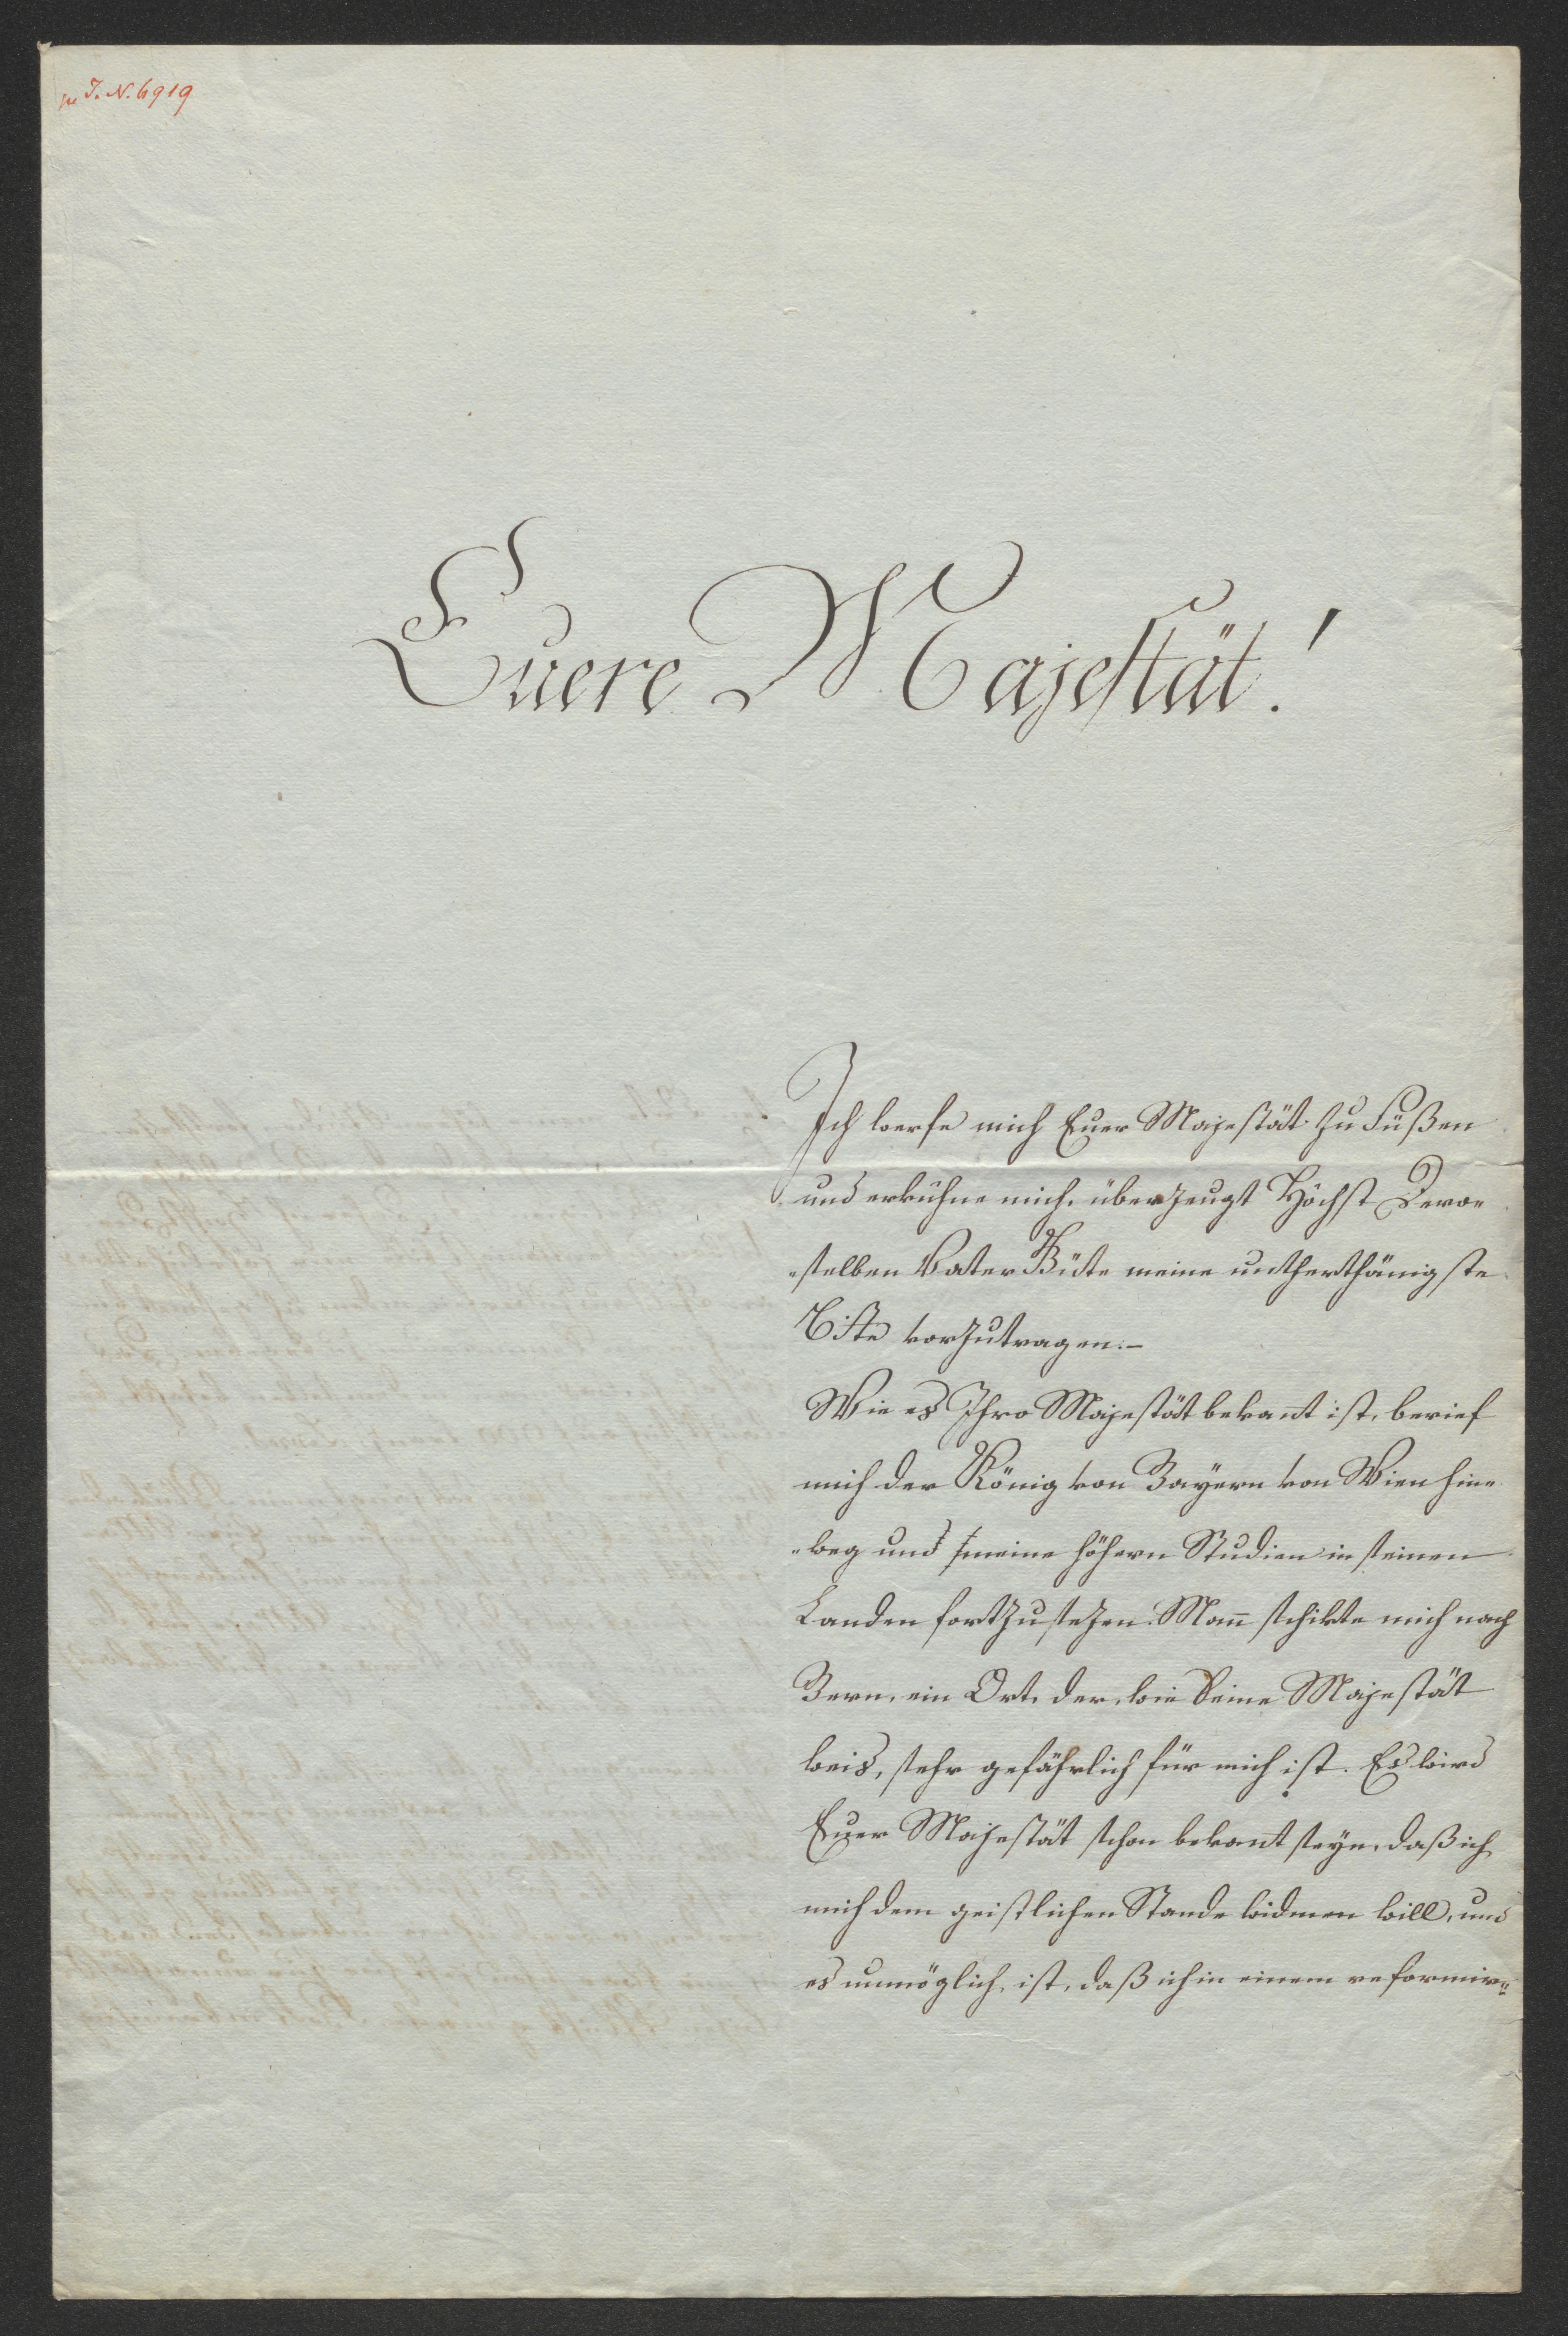 zu I.N. 6919
Euere Majestät!
Ich werfe mich Euer Majestät zu Füßen
und erkühne mich, überzeugt Höchst Dero„
„selben Vater Güte meine untherthänigste
Bitte vorzutragen.–
Wie es Ihro Majestät bekan̄t ist, berief
mich der König von Bayern von Wien hin„
„weg und meine höhern Studien in seinen
Landen fortzusezen. Man̄ schikte mich nach
Bern, ein Ort, der, wie Seine Majestät
weis, sehr gefährlich für mich ist. Es wird
Euer Majestät schon bekan̄t seyn, daß ich
mich dem geistlichen Stande widmen will, und
es unmöglich ist, daß ich in einem reformir„